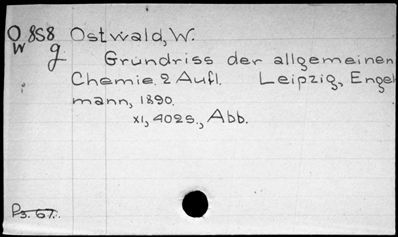 O 858 Ostwald, W.
W g Grundriss der allgemeinen
Chemie. 2 Aufl. Leipzig, Engel
mann, 1890.
XI, 402S., Abb.
Ps. 67.